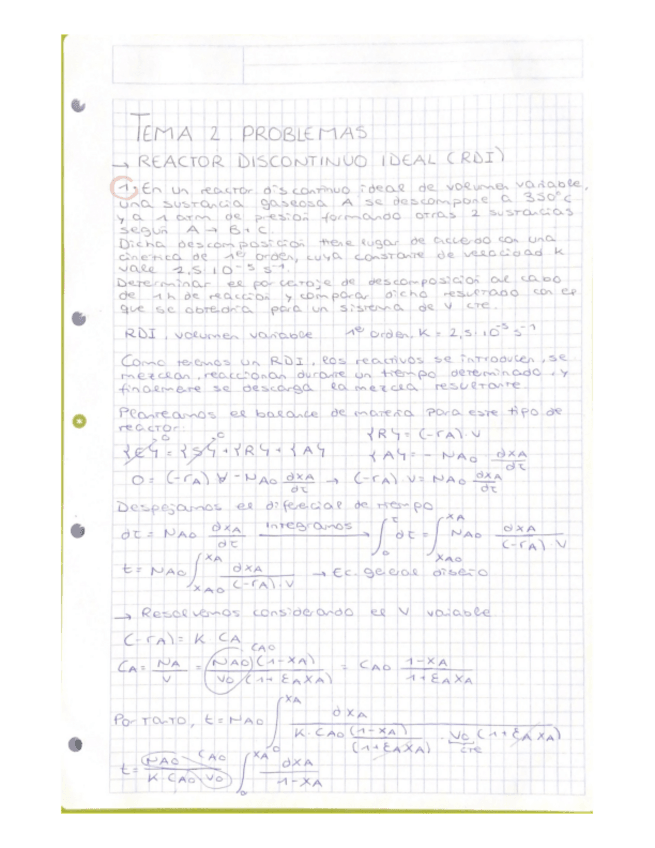 TEMA 2 PROBLEMAS
→ REACTOR DISCONTINUO IDEAL (RDI)
1. En un reactor discontinuo ideal de volumen variable,
una sustancia gaseosa A se descompone a 350°C
y a 1 atm de presión formando otras 2 sustancias
según A → B + C.
Dicha descomposición tiene lugar de acuerdo con una
cinética de 1er orden, cuya constante de velocidad K
vale 2,5·10⁻⁵ s⁻¹.
Determinar el porcentaje de descomposición al cabo
de 1h de reacción y comparar dicho resultado con el
que se obtendría para un sistema de V cte.
RDI, volumen variable 1er orden, K = 2,5·10⁻⁵ s⁻¹
Como tenemos un RDI, los reactivos se introducen, se
mezclan, reaccionan durante un tiempo determinado, y
finalmente se descarga la mezcla resultante.
Planteamos el balance de materia para este tipo de
reactor:
{E} = {S} + {R} + {A}
{R} = (-rA)·V
{A} = - NAO dxA/dt
0 = (-rA) V - NAO dxA/dt → (-rA) V = NAO dxA/dt
Despejamos el diferecial de tiempo
dt = NAO dxA/dt Integramos → ∫₀ᵗ dt = ∫_XAO^XA NAO dxA/(-rA)·V
t = NAO ∫_XAO^XA dxA/(-rA)·V → Ec. general diseño
→ Resolvemos considerando el V variable
(-rA) = K CA
CA = NA/V = NAO (1-XA)/VO (1+ƐA XA) = CAO 1-XA/1+ƐA XA
CAO
Por tanto, t = NAO ∫₀^XA dXA/K·CAO (1-XA)/(1+ƐA XA) · VO (1+ƐA XA)
cte
t = NAO/K·CAO·VO ∫₀^XA dXA/1-XA
CAO